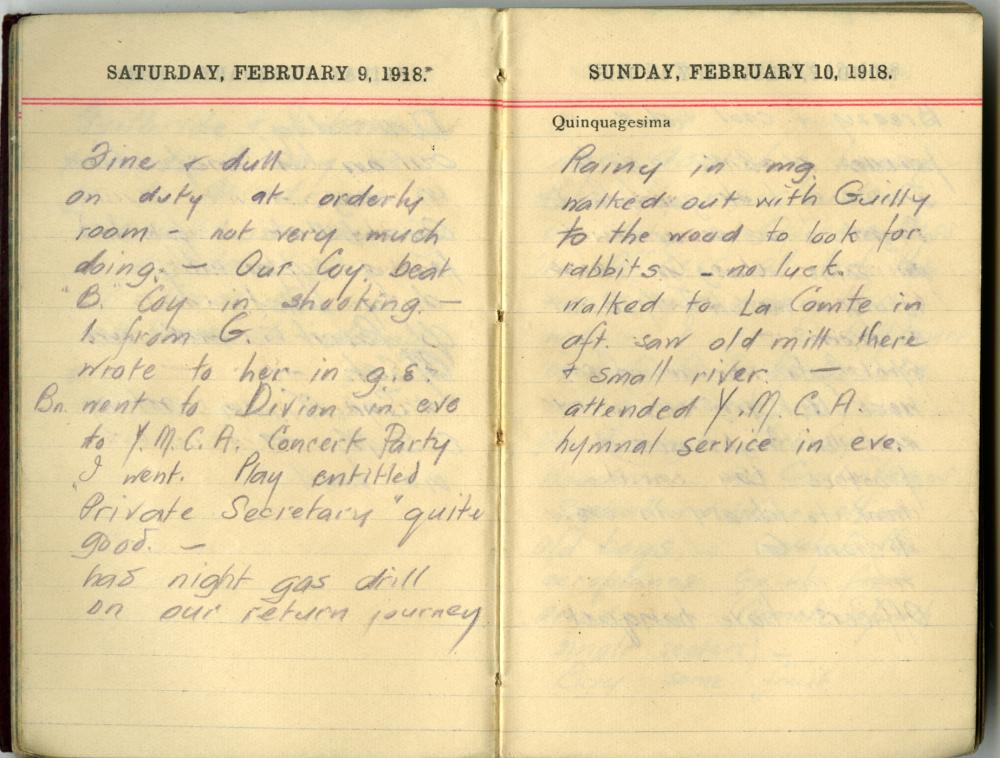 SATURDAY, FEBRUARY 9, 1918.
Fine & dull
on duty at orderly
room – not very much
doing. – Our Coy. beat
"B." Coy in shooting. –
from G.
wrote to her in g.e.
Bn. went to Divion in eve
to Y.M.C.A. Concert Party
I went. Play entitled
"Private Secretary" quite
good. –
had night gas drill
on our return journey
SUNDAY, FEBRUARY 10, 1918.
Quinquagesima
Rainy in mg.
walked out with Guilly
to the wood to look for
rabbits. – no luck.
walked to La Comte in
aft. saw old mill there
& small river. –
attended Y.M.C.A.
hymnal service in eve.